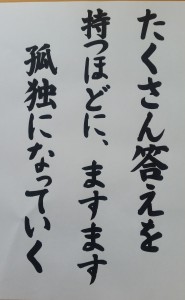 たくさん答えを
持つほどに、ますます
孤独になっていく